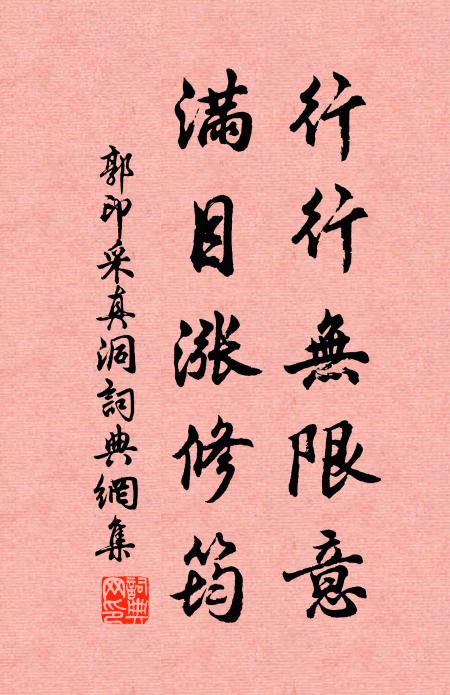 行行無限意
滿目漲修筠
郭印采真洞詞典網集
詞典網印